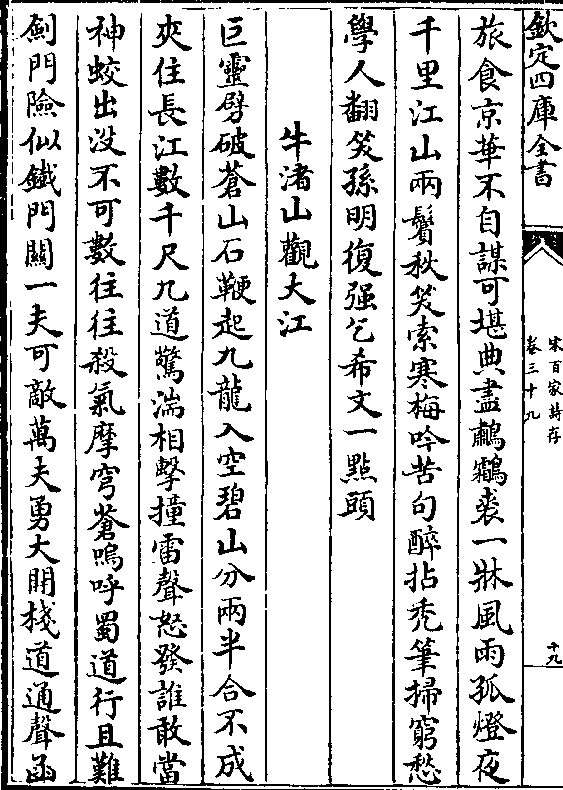 欽定四庫全書
宋百家詩存
卷三十九
十九
旅食京華不自謀可堪典盡鷫鸘裘一牀風雨孤燈夜
千里江山兩鬢秋笑索寒梅吟苦句醉拈秃筆掃窮愁
學人翻笑孫明復强乞希文一點頭
牛渚山觀大江
巨靈劈破蒼山石鞭起九龍入空碧山分兩半合不成
夾住長江數千尺九道驚湍相擊撞雷聲怒發誰敢當
神蛟出没不可數往往殺氣摩穹蒼嗚呼蜀道行且難
劍門險似鐵門關一夫可敵萬夫勇大開棧道通聲函